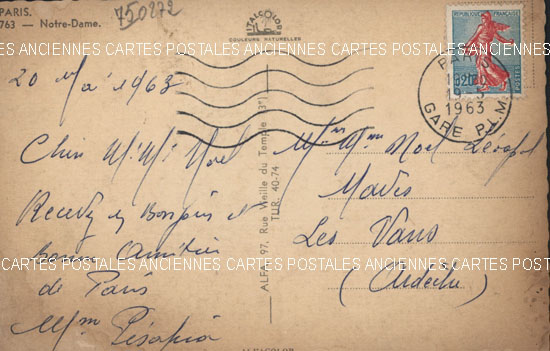 PARIS.
763 — Notre-Dame.
750872
ALFACOLOR
COULEURS NATURELLES
RÉPUBLIQUE FRANÇAISE
POSTES
PARIS
1963
GARE P.L.M.
CARTES POSTALES ANCIENNES CARTES POSTALES ANCIENNES CARTES POSTALES ANCIENNES
20 Mai 1963
Cher M. Mme Noel
Recevez les Bonjours et
bonne Amitiés
de Paris
Mme
ALFA, 97, Rue Vieille du Temple (3e)
TUR. 40-74
Mr Mme Noel
Les Vans
(Ardèche)
CARTES POSTALES ANCIENNES CARTES POSTALES ANCIENNES CARTES POSTALES ANCIENNES
ALFACOLOR